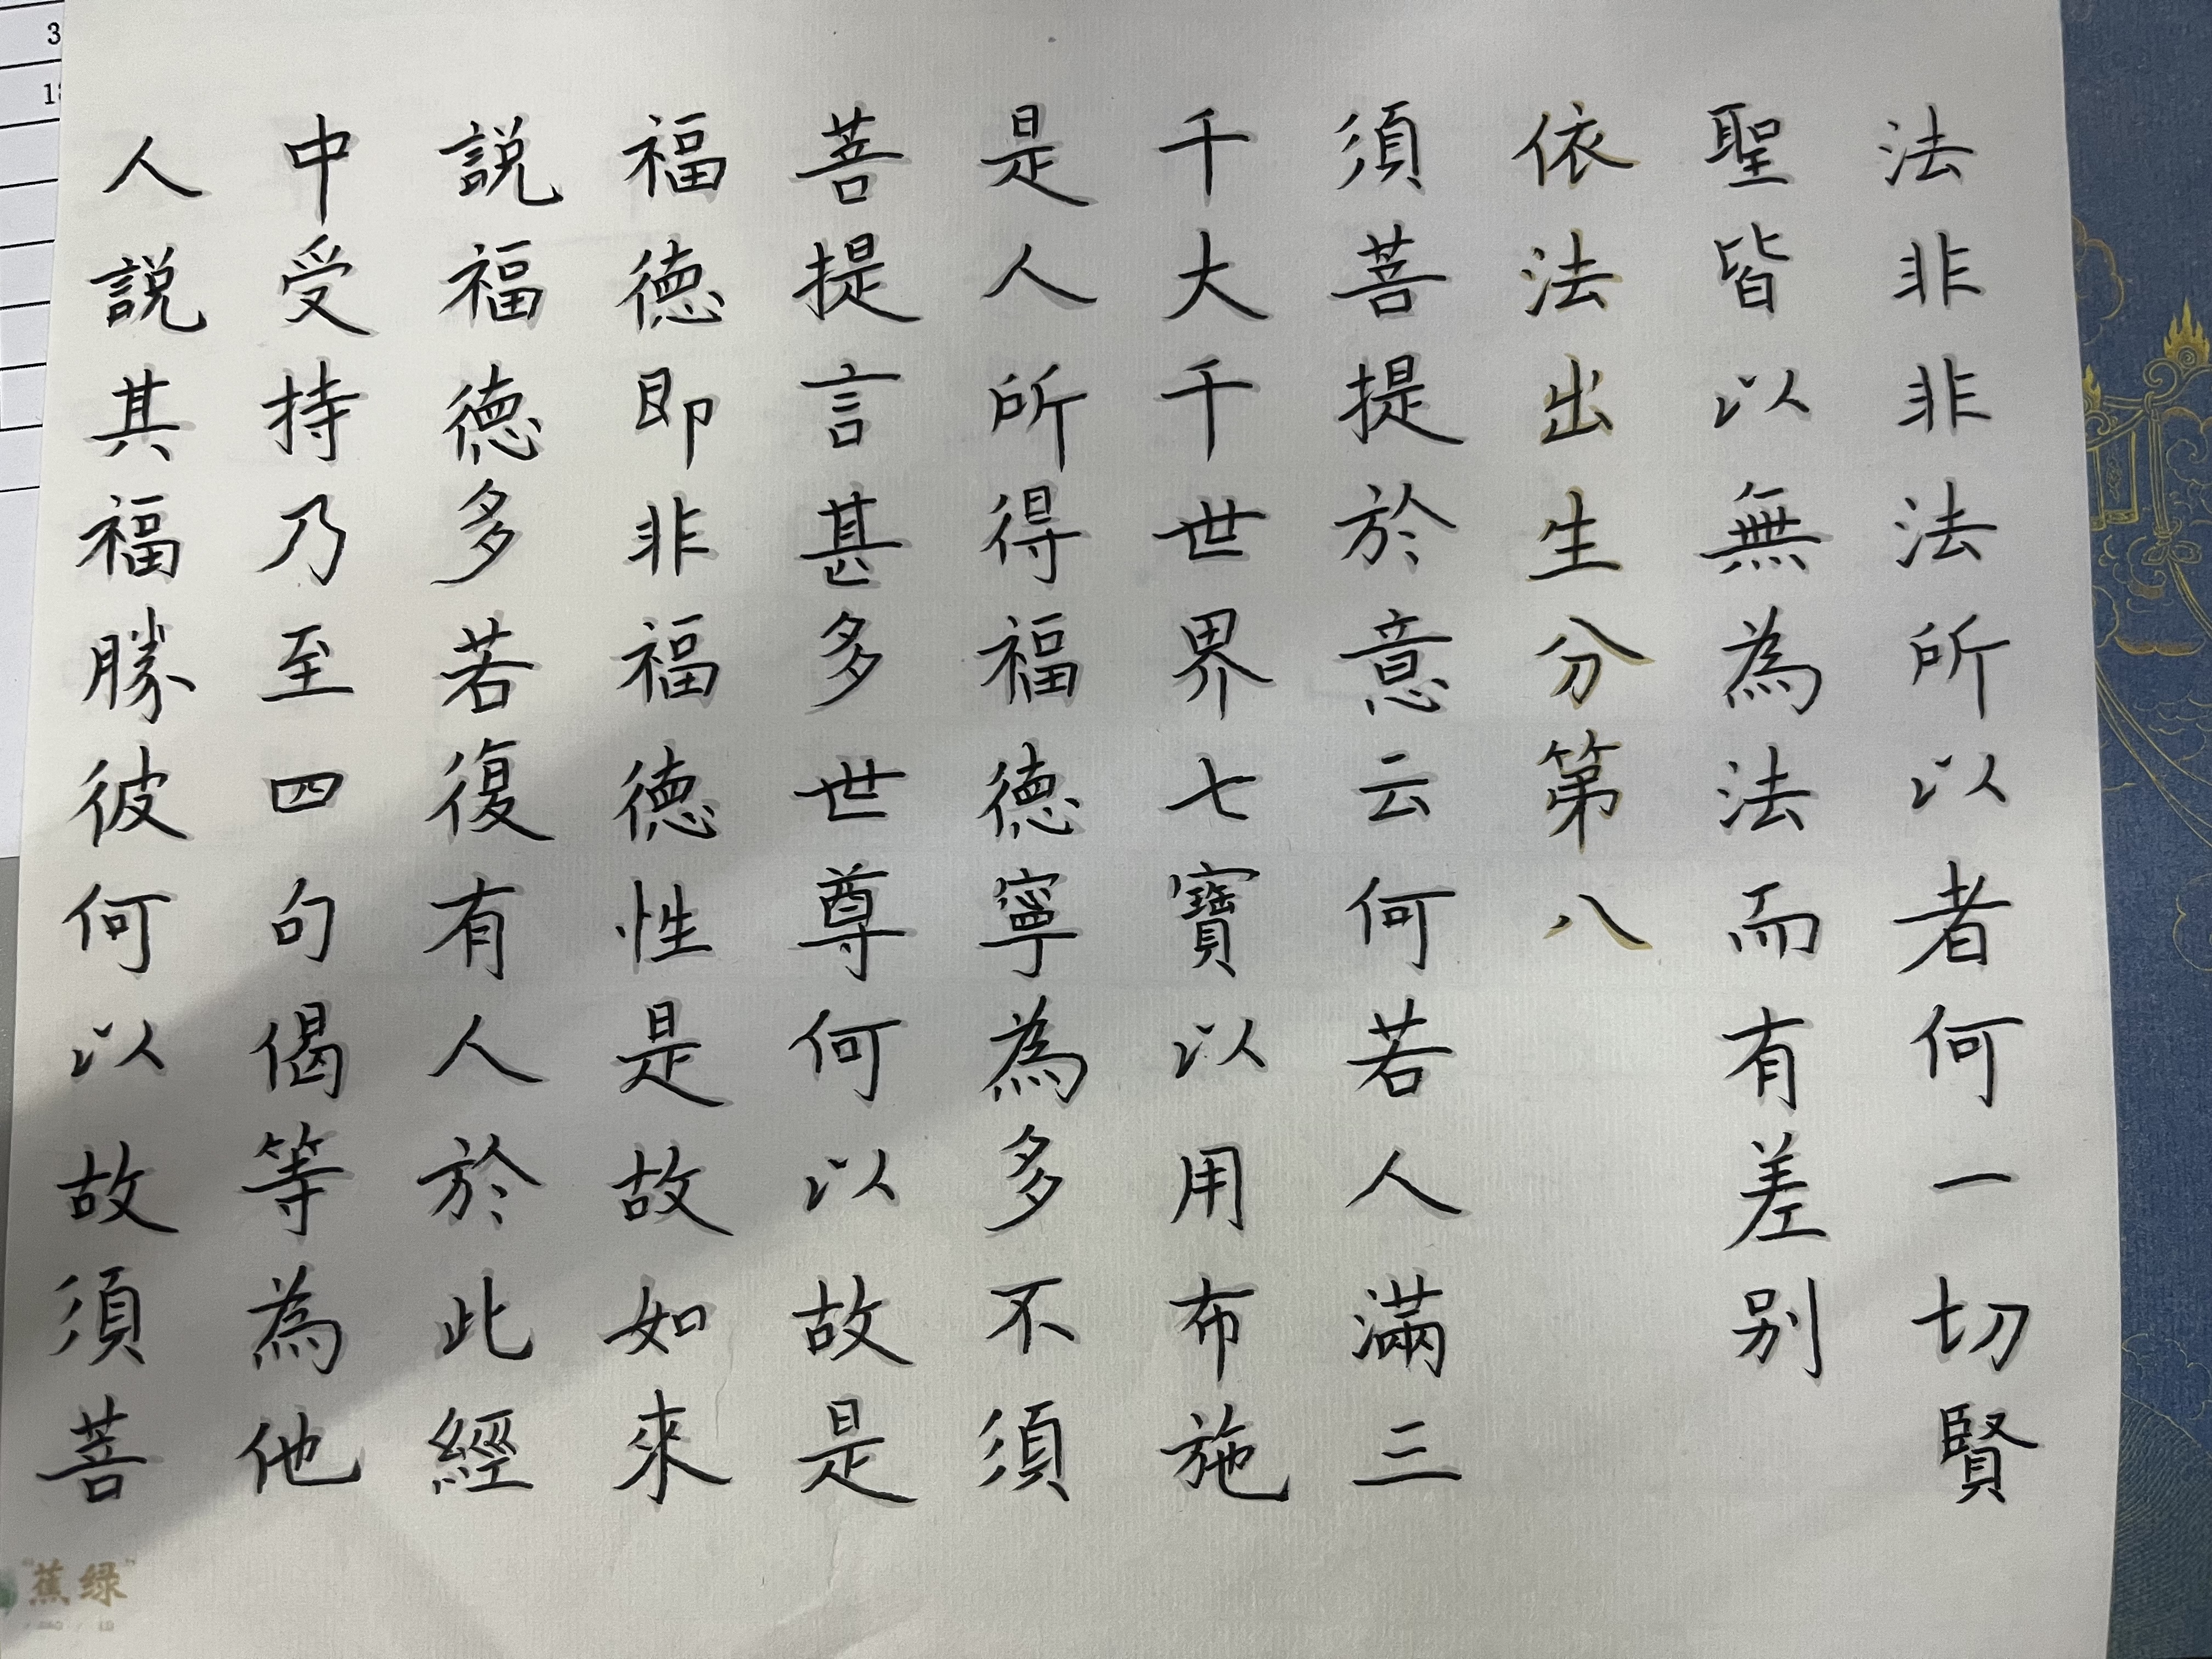 法非非法所以者何一切賢
聖皆以無為法而有差別
依法出生分第八
須菩提於意云何若人滿三
千大千世界七寶以用布施
是人所得福德寧為多不須
菩提言甚多世尊何以故是
福德即非福德性是故如來
說福德多若復有人於此經
中受持乃至四句偈等為他
人說其福勝彼何以故須菩
蕉绿
3